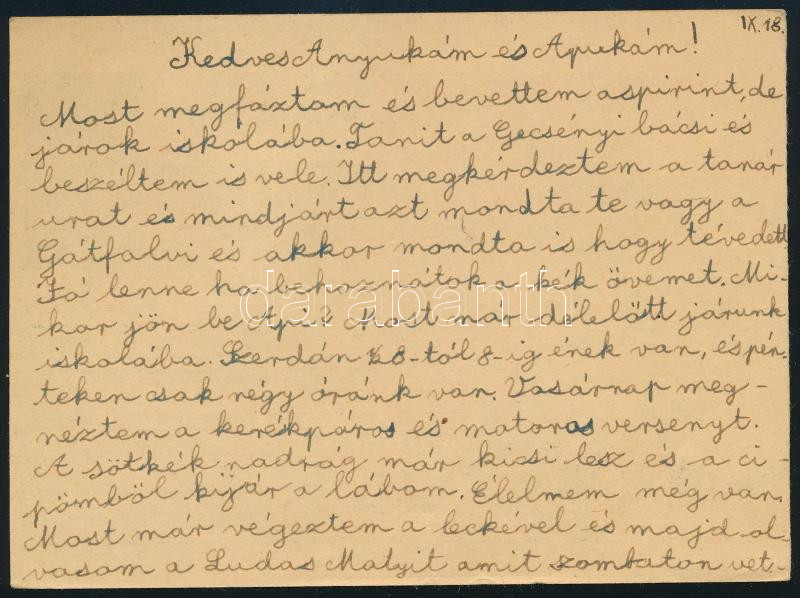 IX.18.
Kedves Anyukám és Apukám!
Most megfáztam és bevettem aspirint, de
járok iskolába. Tanit a Gecsényi bácsi és
beszéltem is vele. Itt megkérdeztem a tanár
urat és mindjárt azt mondta te vagy a
Gátfalvi és akkor mondta is hogy tévedett
Jó lenne ha behoznátok a kék övemet. Mi-
kor jön be Api? Most már délelőtt járunk
iskolába. Szerdán 1/2 8-tól 8-ig ének van, és pén-
teken csak négy óránk van. Vasárnap meg-
néztem a kerékpáros és motoros versenyt.
A sötkék nadrág már kicsi lesz és a ci-
pömböl kijár a lábom. Élelmem még van.
Most már végeztem a leckével és majd ol-
vasom a Ludas Matyit amit szombaton vet-
darabanth